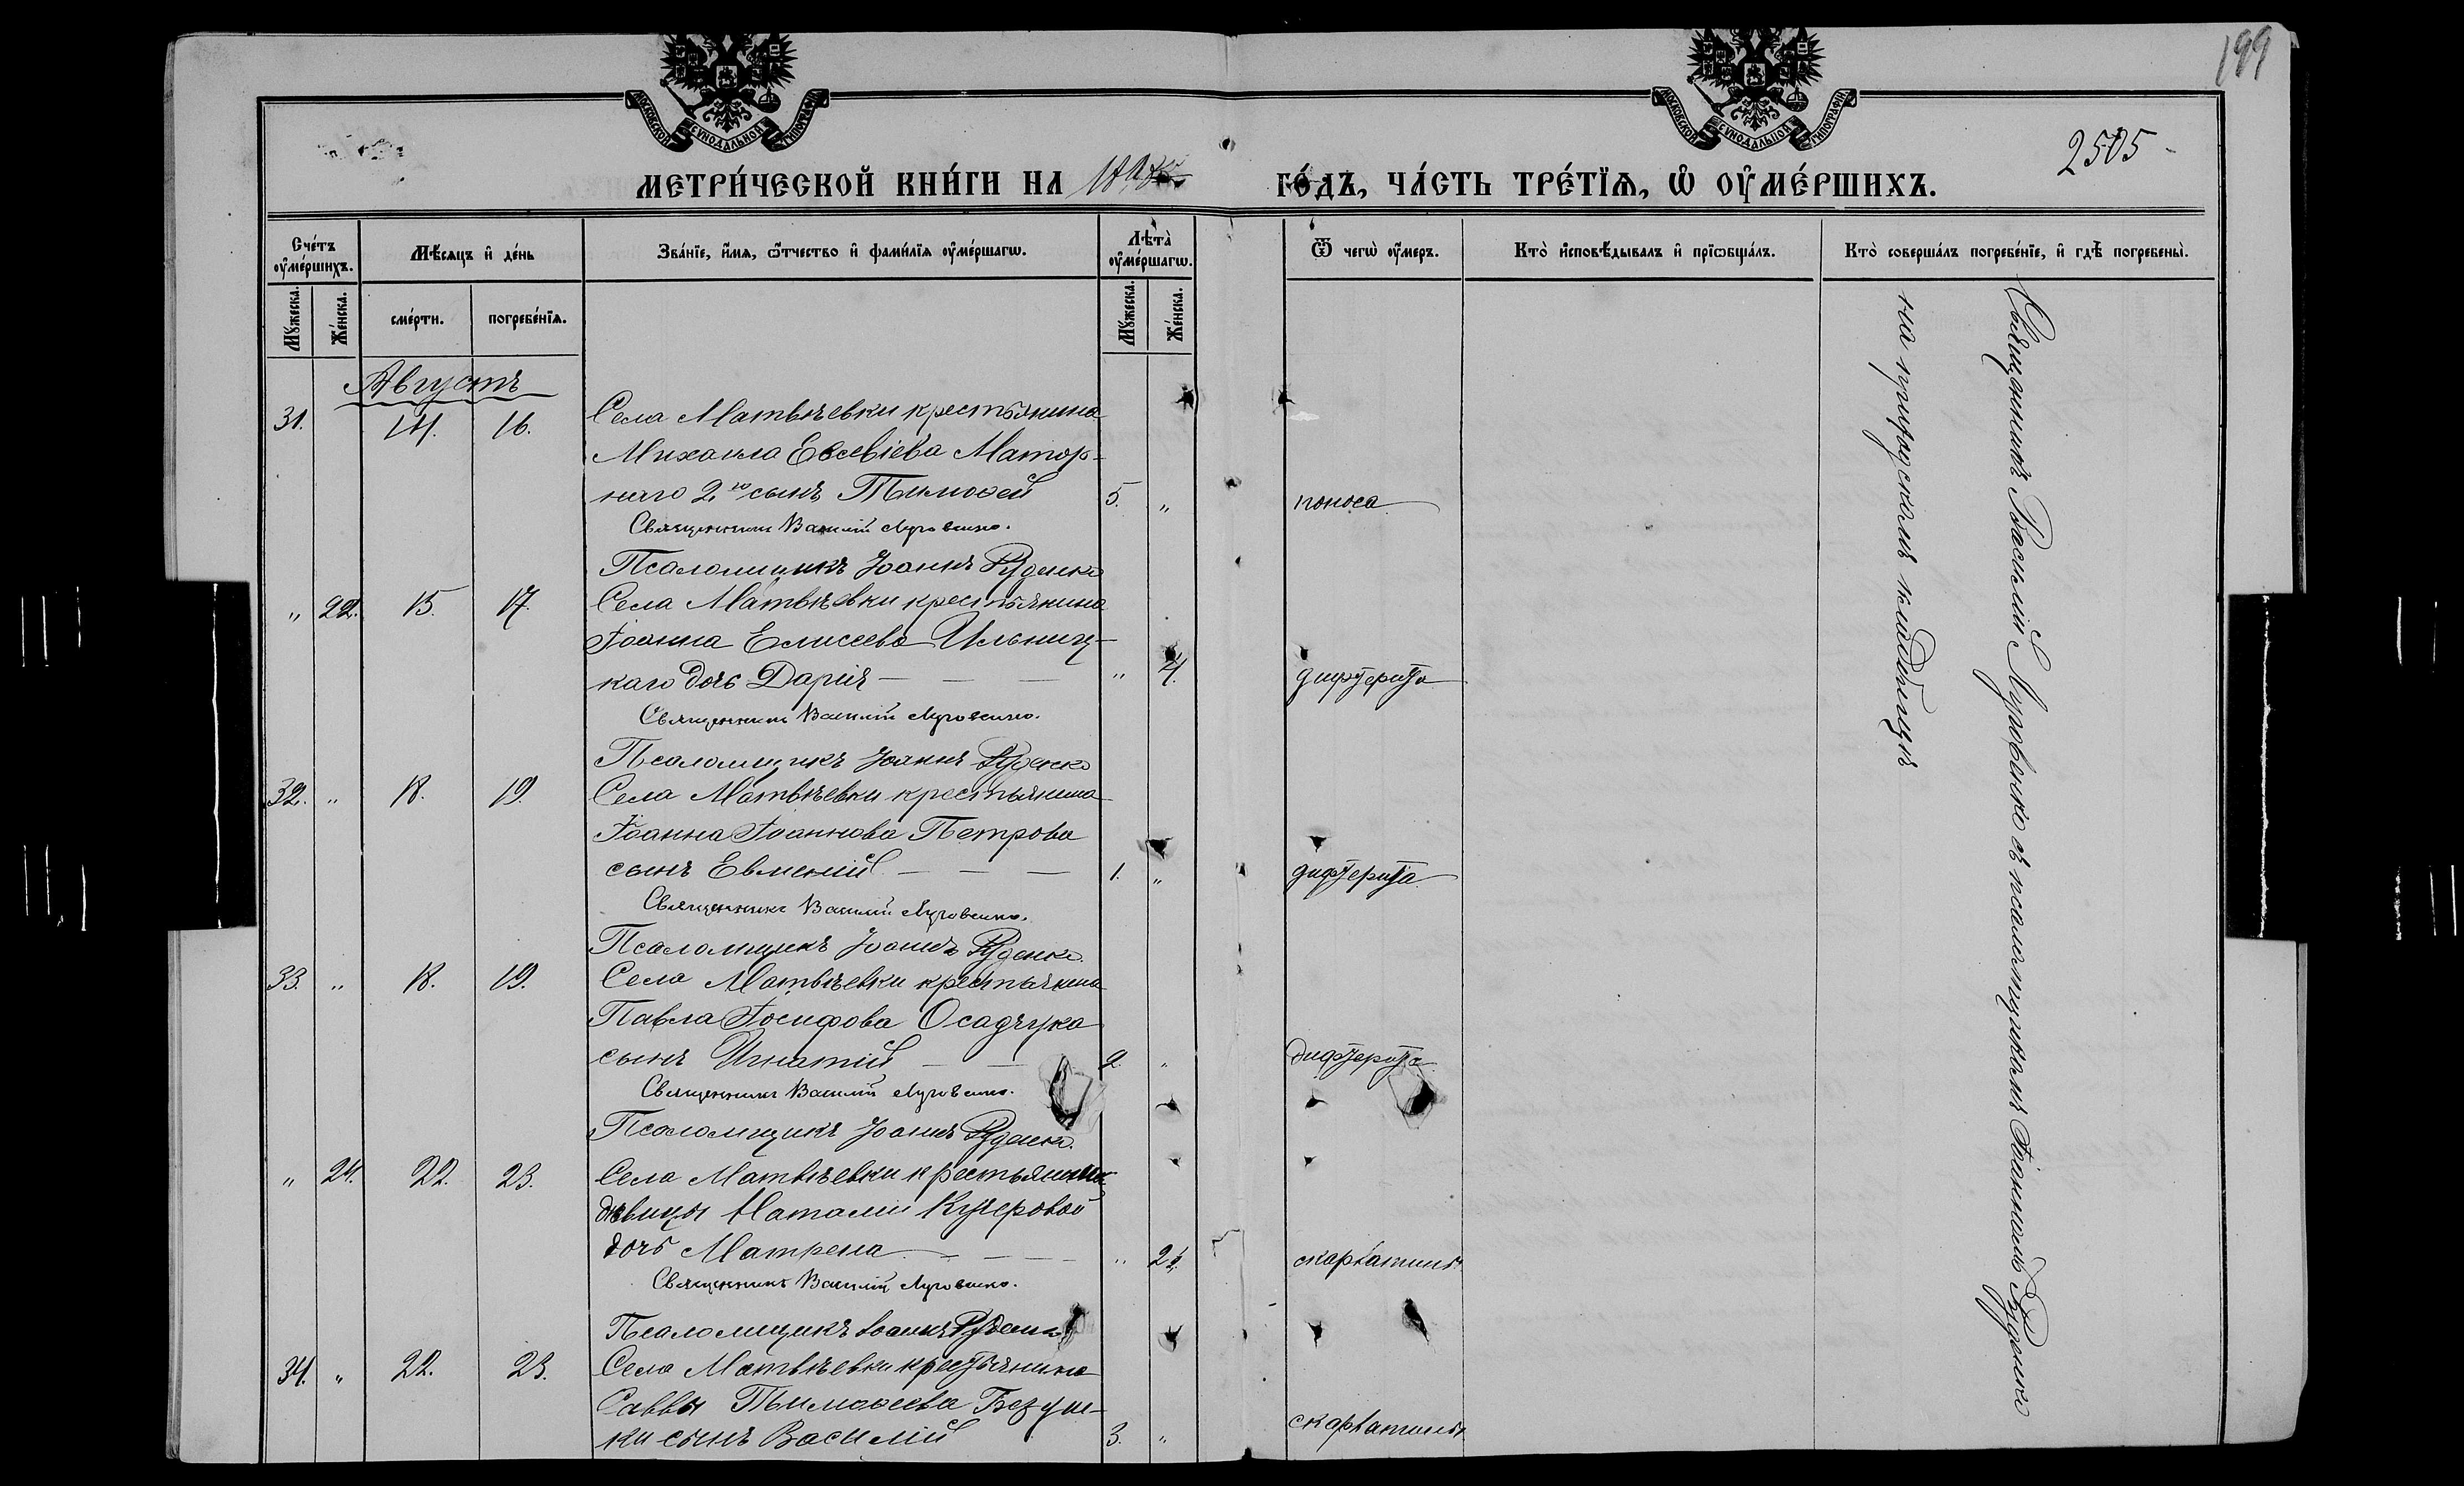 199
2505
МОСКОВСКОЙ СѴНОДАЛЬНОЙ ТИПОГРАФІИ
МОСКОВСКОЙ СѴНОДАЛЬНОЙ ТИПОГРАФІИ
МЕТРИ́ЧЕСКОЙ КНИ́ГИ НА ГО́ДЪ, ЧА́СТЬ ТРЕ́ТЇѦ, Ѡ҆ ОУ҆МЕ́РШИХЪ.
Сче́тъ оу҆ме́ршихъ.
Мѣ́сѧцъ и҆ де́нь
Зва́нїе, и҆́мѧ, ѻ҆́тчество и҆ фами́лїѧ оу҆ме́ршагѡ.
Лѣ́та оу҆ме́ршагѡ.
Ѿ чегѡ̀ оу҆́меръ.
Кто̀ и҆сповѣ́дывалъ и҆ прїѡбща́лъ.
Кто̀ соверша́лъ погребе́нїе, и҆ гдѣ̀ погребены̀.
Мꙋ́жеска.
Же́нска.
сме́рти.
погребе́нїѧ.
Мꙋ́жеска.
Же́нска.
Августъ
31. 14. 16. Села Матвѣевки крестьянина
Михаила Евсевіева Матор-
наго 2го сынъ Тимоѳей 5. „ поноса
Священникъ Василій Луговенко.
Псаломщикъ Іоаннъ Руденко
„ 22. 15. 17. Села Матвѣевки крестьянина
Іоанна Елисеева Ильниц-
каго дочь Дарія — — — „ 4. дифтерита
Священникъ Василій Луговенко.
Псаломщикъ Іоаннъ Руденко
32. „ 18. 19. Села Матвѣевки крестьянина
Іоанна Іоаннова Петрова
сынъ Евмений — — — 1. „ дифтерита
Священникъ Василій Луговенко.
Псаломщикъ Іоаннъ Руденко.
33. „ 18. 19. Села Матвѣевки крестьянина
Павла Іосифова Осадчука
сынъ Игнатій — — 2. „ дифтерита
Священникъ Василій Луговенко.
Псаломщикъ Іоаннъ Руденко.
„ 24. 22. 23. Села Матвѣевки
дѣвицы Наталіи Кучеровой
дочь Матрена — — — „ скарлатины
Священникъ Василій Луговенко.
Псаломщикъ Іоаннъ Руденко
34. „ 22. 23. Села Матвѣевки крестьянина
Саввы Тимоѳеева
сынъ Василій 3. „ скарлатины
Священникъ Василій Луговенко съ псаломщикомъ Іоанномъ Руденко
на приходскомъ кладбищѣ